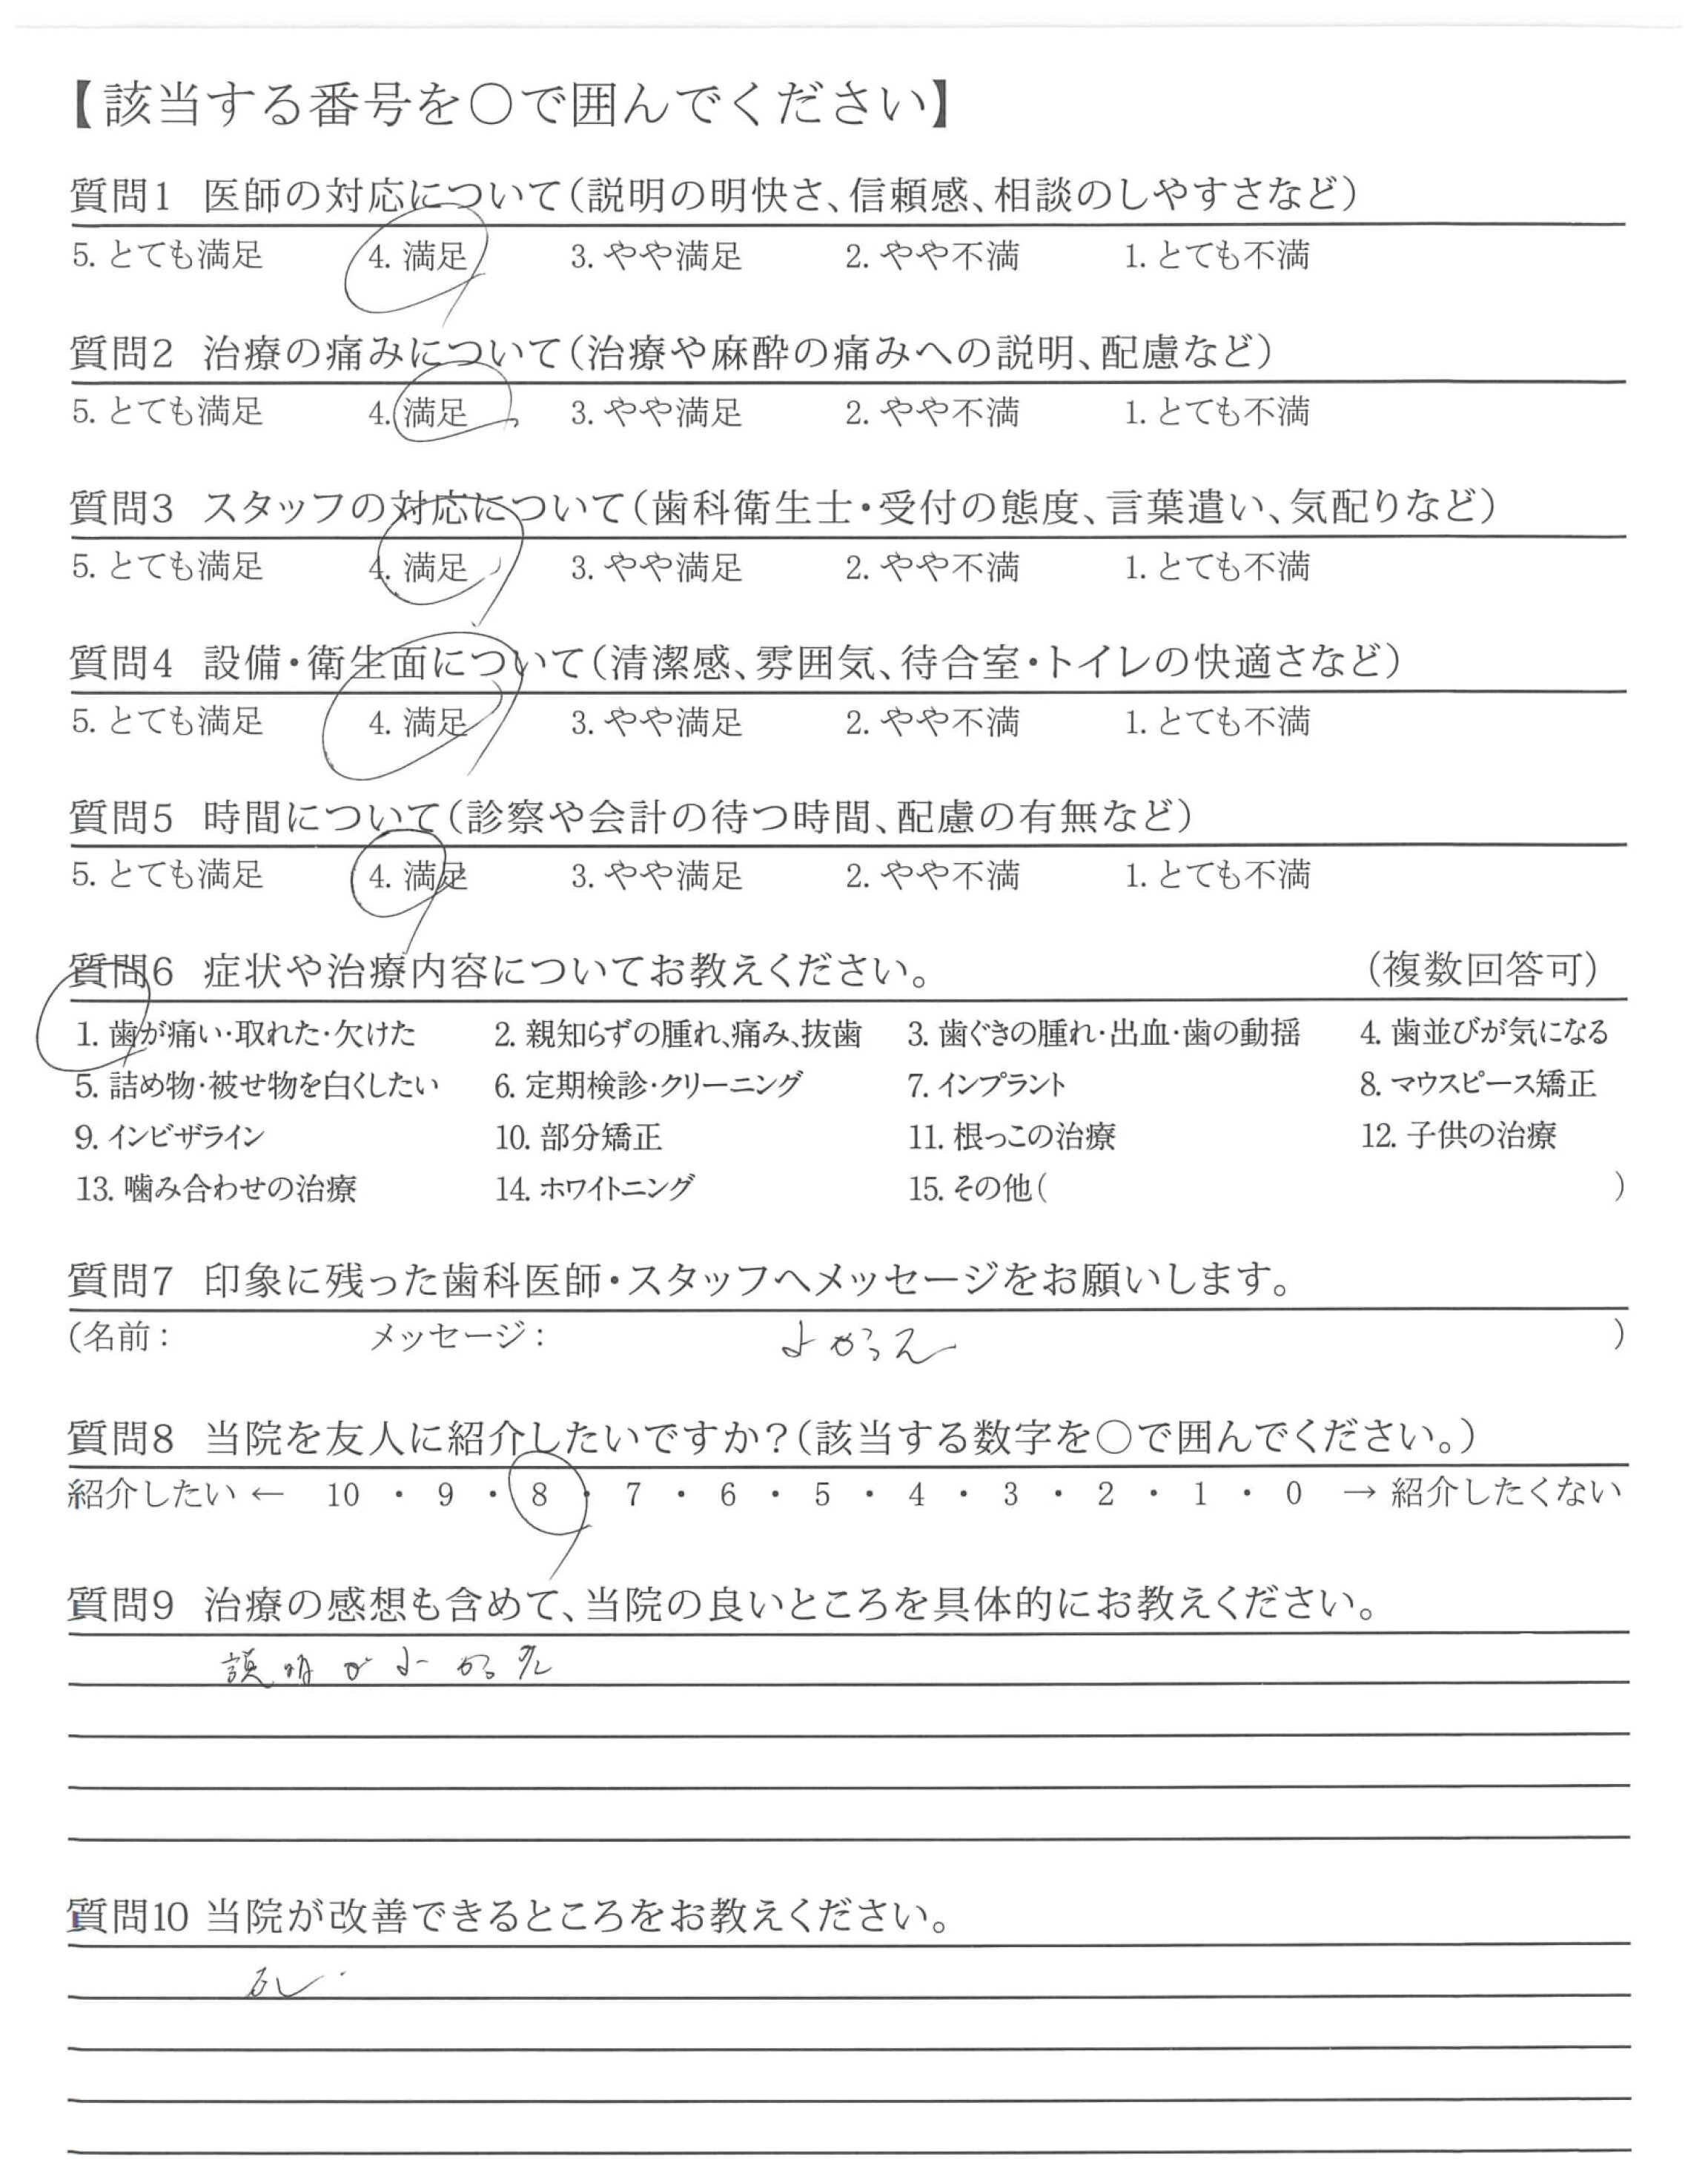 【該当する番号を〇で囲んでください】
質問1 医師の対応について(説明の明快さ、信頼感、相談のしやすさなど)
5. とても満足 4. 満足 3. やや満足 2. やや不満 1. とても不満
質問2 治療の痛みについて(治療や麻酔の痛みへの説明、配慮など)
5. とても満足 4. 満足 3. やや満足 2. やや不満 1. とても不満
質問3 スタッフの対応について(歯科衛生士・受付の態度、言葉遣い、気配りなど)
5. とても満足 4. 満足 3. やや満足 2. やや不満 1. とても不満
質問4 設備・衛生面について(清潔感、雰囲気、待合室・トイレの快適さなど)
5. とても満足 4. 満足 3. やや満足 2. やや不満 1. とても不満
質問5 時間について(診察や会計の待つ時間、配慮の有無など)
5. とても満足 4. 満足 3. やや満足 2. やや不満 1. とても不満
質問6 症状や治療内容についてお教えください。 (複数回答可)
1. 歯が痛い・取れた・欠けた 2. 親知らずの腫れ、痛み、抜歯 3. 歯ぐきの腫れ・出血・歯の動揺 4. 歯並びが気になる
5. 詰め物・被せ物を白くしたい 6. 定期検診・クリーニング 7. インプラント 8. マウスピース矯正
9. インビザライン 10. 部分矯正 11. 根っこの治療 12. 子供の治療
13. 噛み合わせの治療 14. ホワイトニング 15. その他( )
質問7 印象に残った歯科医師・スタッフへメッセージをお願いします。
(名前: メッセージ: よかった )
質問8 当院を友人に紹介したいですか?(該当する数字を〇で囲んでください。)
紹介したい ← 10 ・ 9 ・ 8 ・ 7 ・ 6 ・ 5 ・ 4 ・ 3 ・ 2 ・ 1 ・ 0 → 紹介したくない
質問9 治療の感想も含めて、当院の良いところを具体的にお教えください。
説明がよかった
質問10 当院が改善できるところをお教えください。